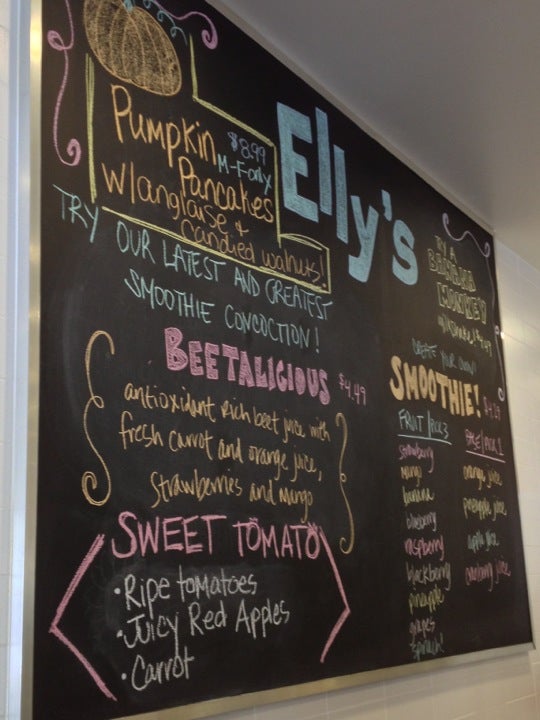 Elly's
Pumpkin $8.99
M-F only
Pancakes
w/anglaise &
candied walnuts!
TRY OUR LATEST AND GREATEST
SMOOTHIE CONCOCTION!
BEETALICIOUS $4.49
antioxidant rich beet juice with
fresh carrot and orange juice,
strawberries and mango
SWEET TOMATO
• Ripe tomatoes
• Juicy Red Apples
• Carrot
TRY A
BANANA
MONKEY
CREATE YOUR OWN!
SMOOTHIE!
FRUIT/PICK 3
strawberry
mango
banana
blueberry
raspberry
blackberry
pineapple
grapes
spinach!
PICK 1
orange juice
pineapple juice
apple juice
cranberry juice